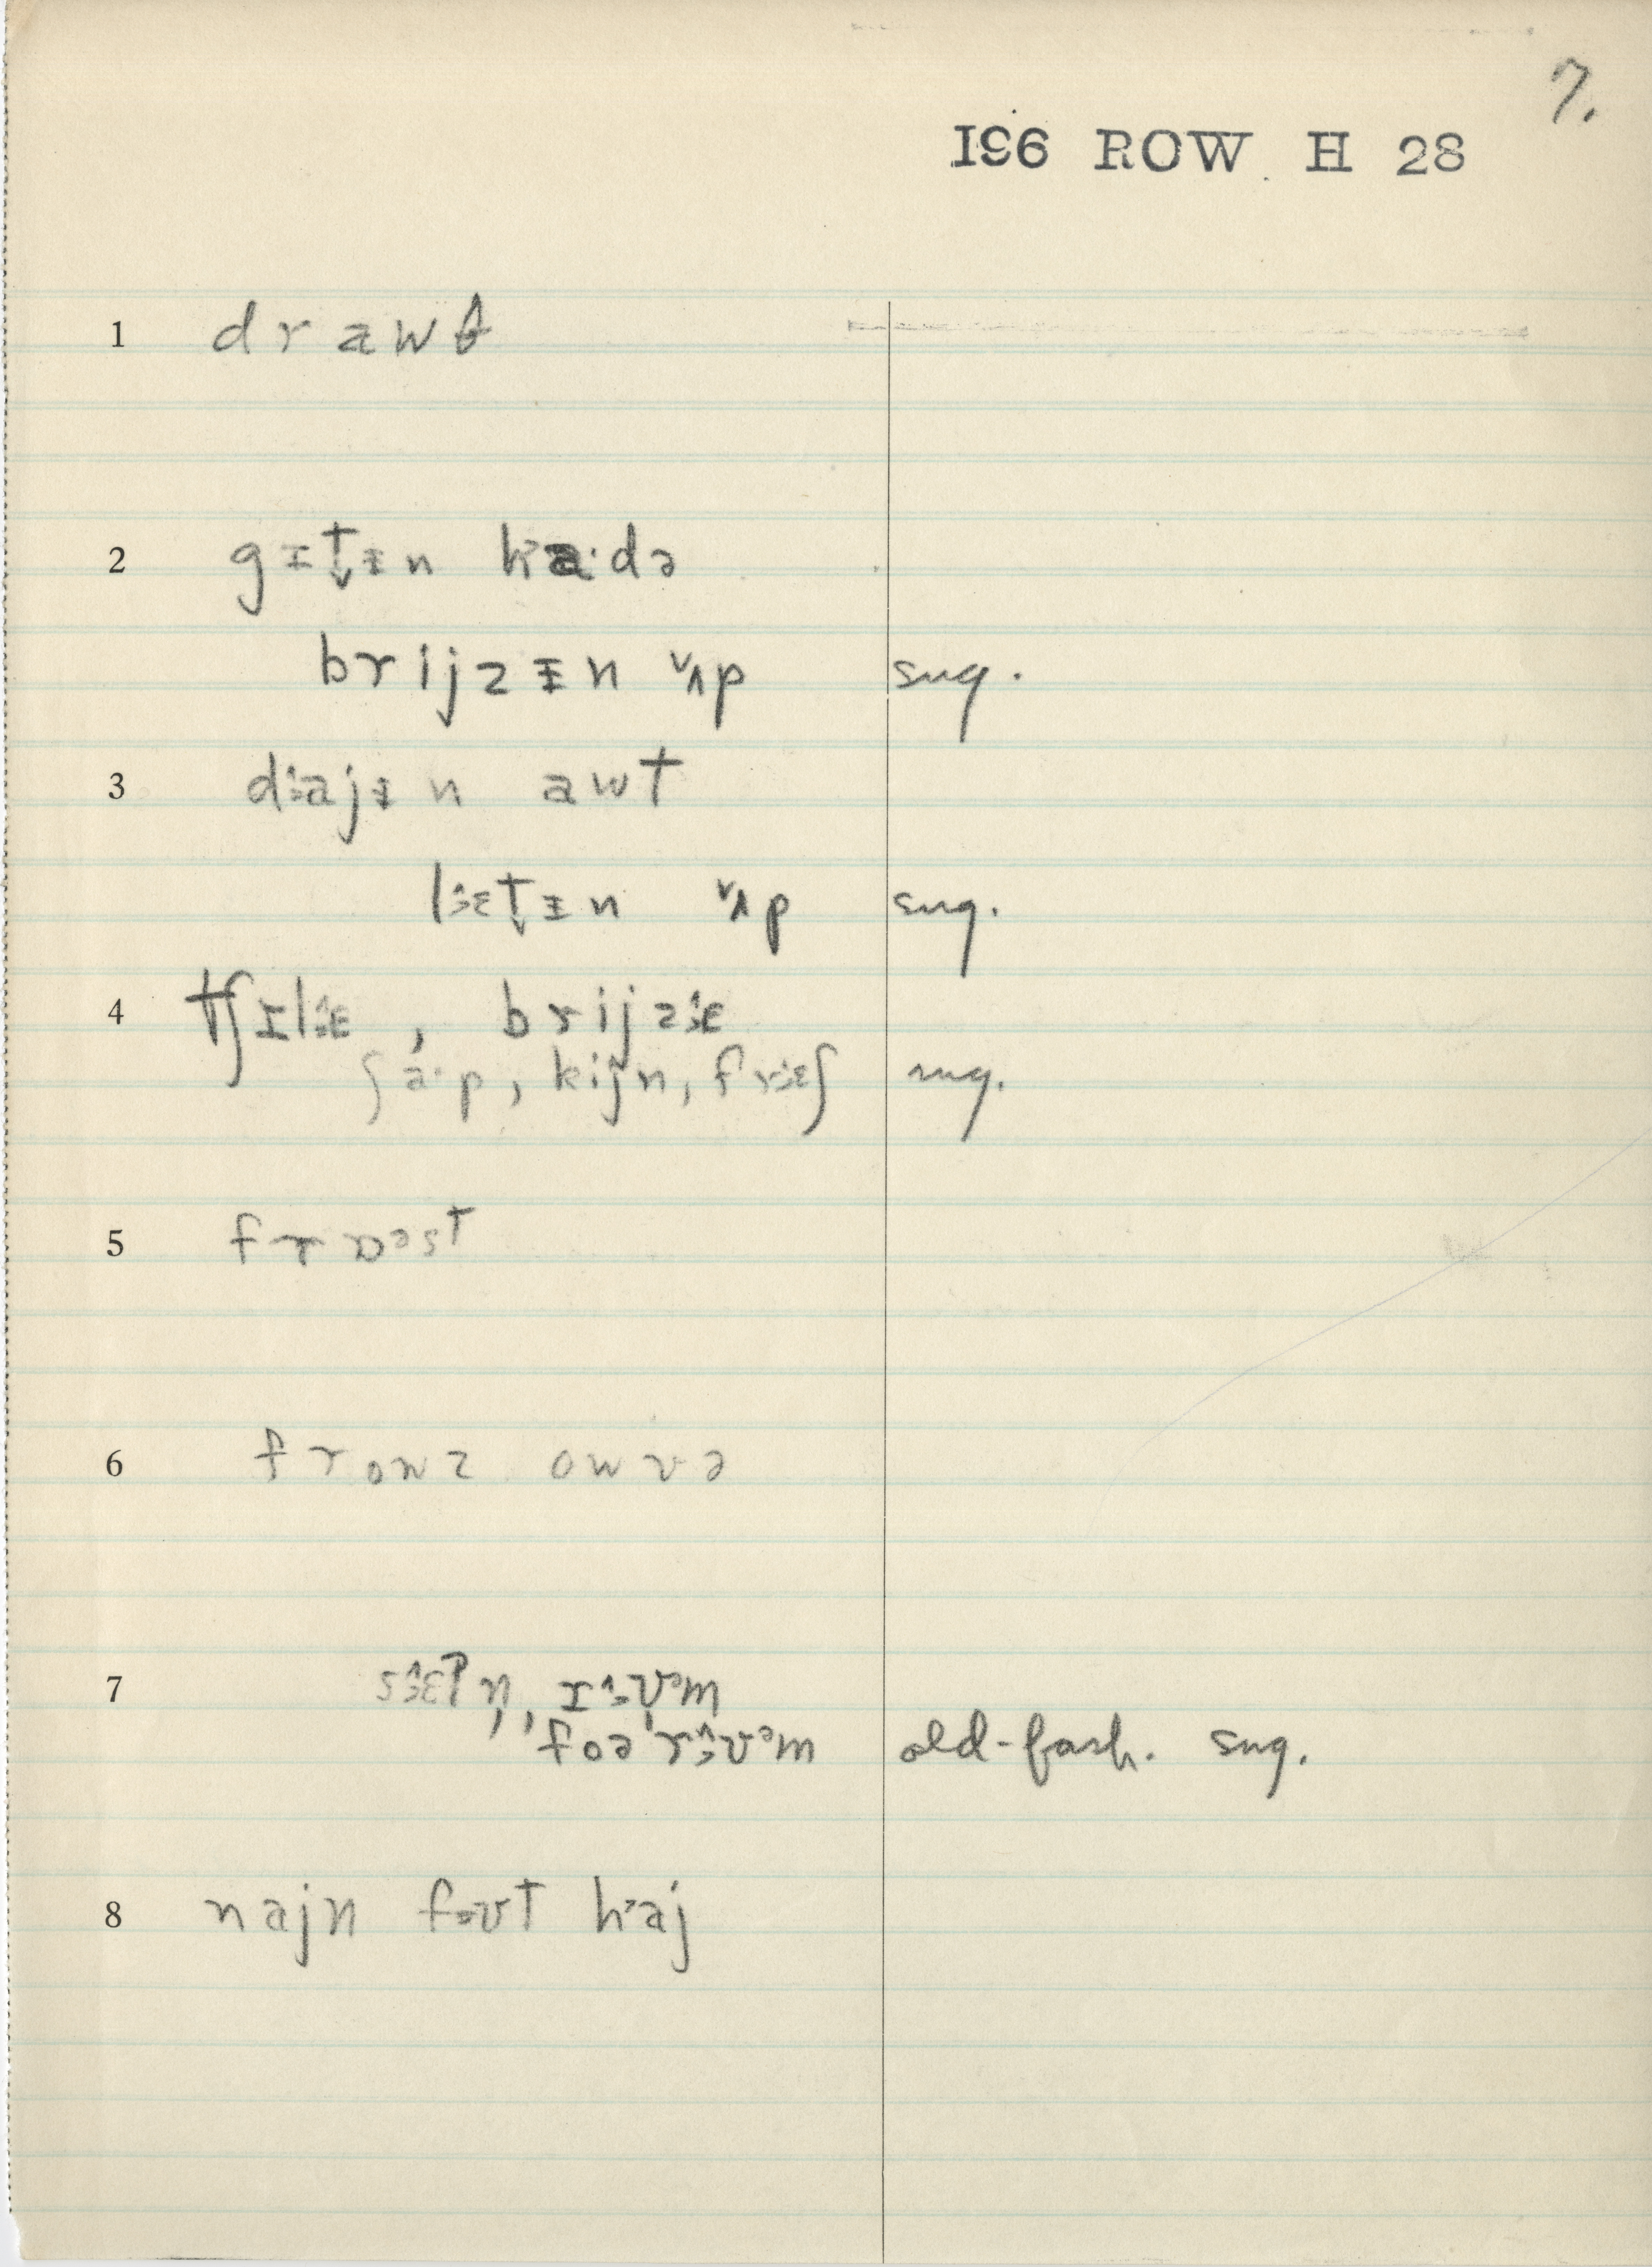 7.
I96 ROW H 28
1 drawθ
2 gɪt̬ɨn haˑdə
brijzɨn ʌp sug.
3 dɜajɨn awt
lɜɛt̬ɨn ʌp sug.
4 tʃɪlɜɛ, brijzɜɛ
ʃaˑp, kijn, frɜɛʃ sug.
5 frɒəst
6 frowz owvə
7 sɜɛʔn̩, ɪɜʊəm
foə'rɜʊəm old-fash. sug.
8 najn fɜʊt haj